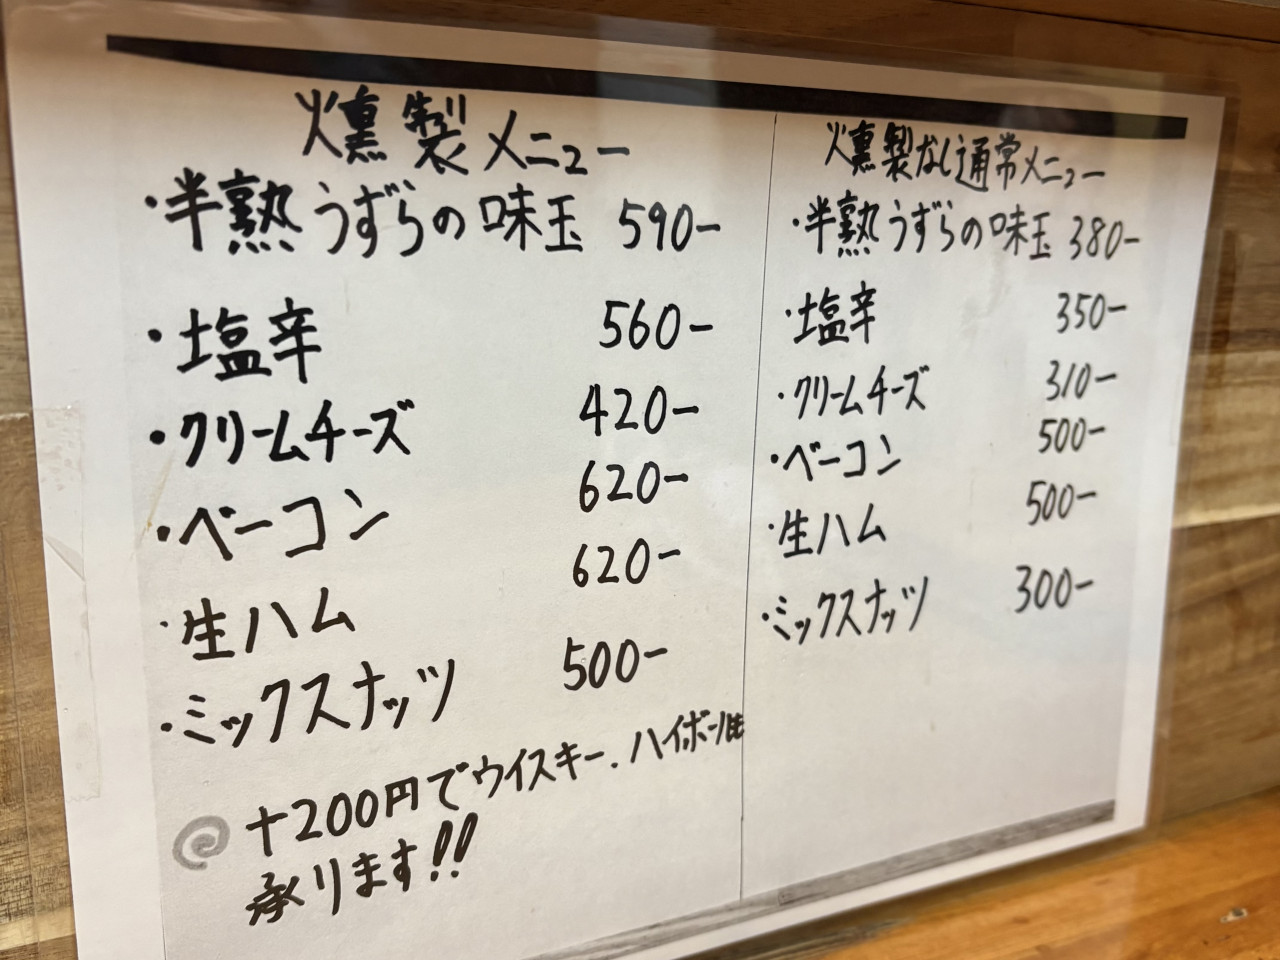 燻製メニュー
・半熟うずらの味玉 590-
・塩辛 560-
・クリームチーズ 420-
・ベーコン 620-
・生ハム 620-
・ミックスナッツ 500-
+200円でウイスキー、ハイボール
承ります!!
燻製なし通常メニュー
・半熟うずらの味玉 380-
・塩辛 350-
・クリームチーズ 310-
・ベーコン 500-
・生ハム 500-
・ミックスナッツ 300-